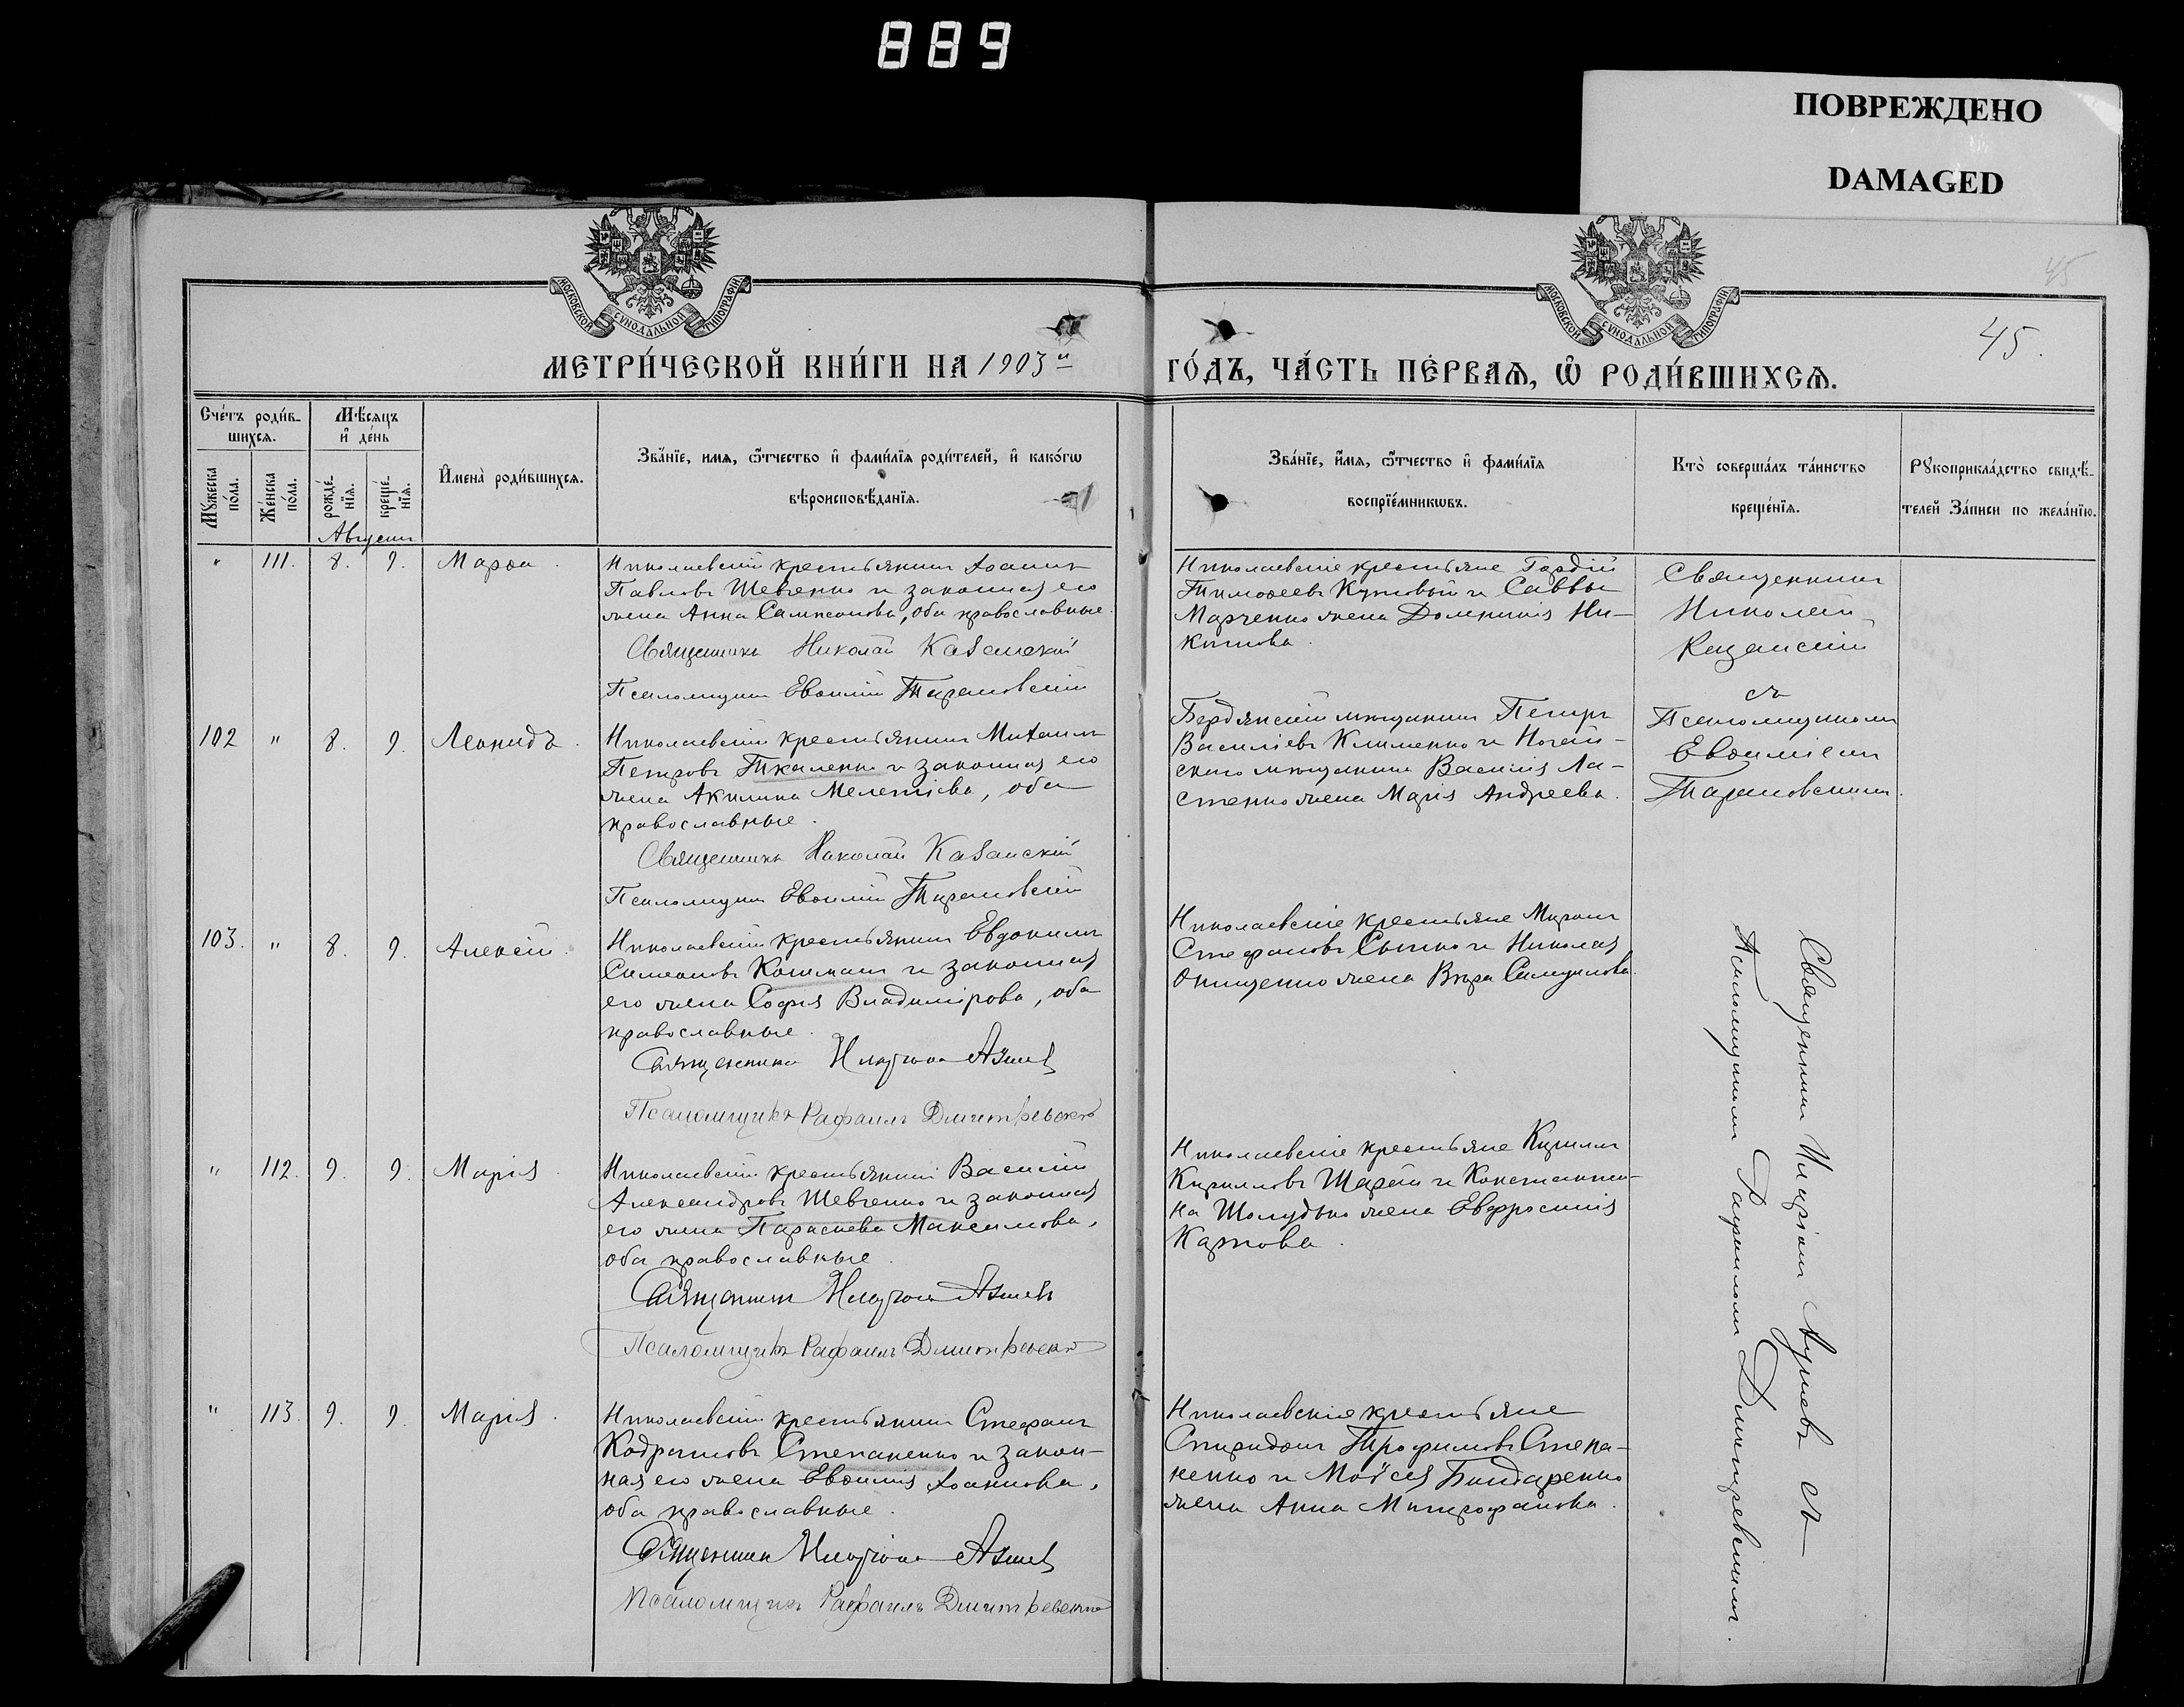 889
ПОВРЕЖДЕНО
DAMAGED
МОСКОВСКОЙ СѴНОДАЛЬНОЙ ТИПОГРАФІИ
МОСКОВСКОЙ СѴНОДАЛЬНОЙ ТИПОГРАФІИ
45
45.
МЕТРИ́ЧЕСКОЙ КНИ́ГИ НА 1903й
ГО́ДЪ, ЧА́СТЬ ПЕ́РВАѦ, Ѡ РОДИ́ВШИХСѦ.
Сче́тъ роди́в-
шихсѧ.
Мѣ́сяцъ
и҆ де́нь
Мꙋ́жеска по́ла.
Же́нска по́ла.
рожде́нїѧ.
креще́нїѧ.
И҆мена̀ роди́вшихсѧ.
Зва́нїе, имѧ, ѻ҆́тчество и҆ фами́лїѧ роди́телей, и҆ како́гѡ
вѣроисповѣ́данїѧ.
Зва́нїе, и҆́мѧ, ѻ҆́тчество и҆ фами́лїѧ
воспрїе́мникѡвъ.
Кто̀ соверша́лъ та́инство
креще́нїѧ.
Рꙋкоприкла́дство свидѣ́-
телей За́писи по жела́нїю.
Августъ
" 111. 8. 9. Марѳа.
Николаевскій крестьянинъ Іоаннъ
Павловъ Шевченко и законная его
жена Анна Сампсонова, оба православные.
Священникъ Николай Казанскій
Псаломщикъ Евѳимій Тарановскій
Николаевскіе крестьяне Гордій
Тимоѳеевъ Кутовый и Саввы
Марченко жена Домникія Ни-
китова.
Священникъ
Николай
Казанскій
съ
Псаломщикомъ
Евѳиміемъ
Тарановскимъ.
102 " 8. 9. Леонидъ.
Николаевскій крестьянинъ Михаилъ
Петровъ Ткаленко и законная его
жена Акилина Мелетіева, оба
православные.
Священникъ Николай Казанскій
Псаломщикъ Евѳимій Тарановскій
Бердянскій мѣщанинъ Петръ
Василіевъ Клименко и Ногай-
скаго мѣщанина Василія Ла-
стенко жена Марія Андреева.
103. " 8. 9. Алексій.
Николаевскій крестьянинъ Евдокимъ
Симеоновъ Кошманъ и законная
его жена Софія Владимірова, оба
православные.
Священникъ Иларіонъ
Псаломщикъ Рафаилъ Дмитревскій
Николаевскіе крестьяне Миронъ
Стефановъ Сытко и Николая
Онищенко жена Вѣра Самуилова.
Священникъ Иларіонъ съ
Псаломщикомъ Рафаиломъ Дмитревскимъ.
" 112. 9. 9. Марія.
Николаевскій крестьянинъ Василій
Александровъ Шевченко и законная
его жена Параскева Максимова,
оба православные.
Священникъ Иларіонъ
Псаломщикъ Рафаилъ Дмитревскій
Николаевскіе крестьяне Кириллъ
Кирилловъ Шарай и Константи-
на Шолудько жена Евфросинія
Карпова.
" 113. 9. 9. Марія.
Николаевскій крестьянинъ Стефанъ
Кодратовъ Степаненко и закон-
ная его жена Евѳимія Іоаннова,
оба православные.
Священникъ Иларіонъ
Псаломщикъ Рафаилъ Дмитревскій
Николаевскіе крестьяне
Спиридонъ Трофимовъ Степа-
ненко и Моѵсея Бондаренко
жена Анна Митрофанова.